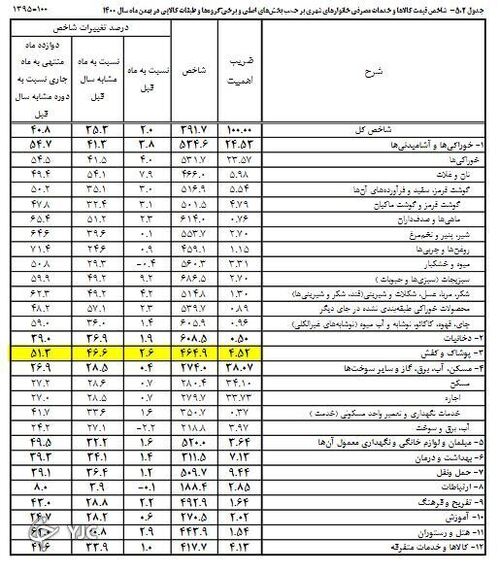 جدول ۵.۲- شاخص قیمت کالاها و خدمات مصرفی خانوارهای شهری بر حسب بخش‌های اصلی و برخی گروه‌ها و طبقات کالایی در بهمن ماه سال ۱۴۰۰ ۱۳۹۵=۱۰۰
شرح ضریب اهمیت شاخص درصد تغییرات شاخص
نسبت به ماه قبل نسبت به ماه مشابه سال قبل دوازده ماه منتهی به ماه جاری نسبت به دوره مشابه سال قبل
شاخص کل ۱۰۰.۰۰ ۳۹۱.۷ ۲.۰ ۳۵.۳ ۴۰.۸
۱- خوراکی‌ها و آشامیدنی‌ها ۲۴.۵۳ ۵۳۴.۶ ۳.۸ ۴۱.۳ ۵۴.۷
خوراکی‌ها ۲۳.۵۷ ۵۳۱.۷ ۴.۰ ۴۱.۵ ۵۴.۵
نان و غلات ۵.۹۸ ۴۶۶.۰ ۷.۹ ۵۴.۱ ۴۹.۴
گوشت قرمز، سفید و فرآورده‌های آن‌ها ۵.۵۴ ۵۱۶.۹ ۳.۰ ۳۵.۱ ۵۰.۲
گوشت قرمز و گوشت ماکیان ۴.۷۹ ۵۰۱.۵ ۳.۱ ۳۲.۴ ۴۷.۸
ماهی‌ها و صدف‌داران ۰.۷۶ ۶۱۴.۰ ۲.۳ ۵۱.۲ ۶۵.۴
شیر، پنیر و تخم‌مرغ ۲.۷۰ ۵۵۳.۷ ۰.۱ ۳۹.۶ ۶۴.۶
روغن‌ها و چربی‌ها ۱.۱۵ ۴۵۹.۱ ۰.۹ ۲۴.۶ ۷۱.۴
میوه و خشکبار ۳.۳۱ ۵۶۰.۳ -۰.۴ ۲۹.۳ ۵۰.۸
سبزیجات (سبزی‌ها و حبوبات) ۲.۷۰ ۶۸۶.۵ ۹.۲ ۴۹.۲ ۵۹.۹
شکر، مربا، عسل، شکلات و شیرینی(قند، شکر و شیرینی‌ها) ۱.۳۰ ۵۱۴.۸ ۴.۲ ۴۹.۲ ۶۲.۳
محصولات خوراکی طبقه‌بندی نشده در جای دیگر ۰.۸۹ ۵۳۹.۷ ۲.۳ ۵۷.۱ ۴۸.۲
چای، قهوه، کاکائو، نوشابه و آب میوه (نوشابه‌های غیرالکلی) ۰.۹۶ ۶۰۵.۹ ۱.۴ ۳۶.۰ ۵۹.۰
۲- دخانیات ۰.۵۰ ۶۰۸.۵ ۱.۹ ۳۶.۹ ۳۹.۰
۳- پوشاک و کفش ۴.۵۲ ۴۶۴.۹ ۲.۶ ۴۶.۶ ۵۱.۳
۴- مسکن، آب، برق، گاز و سایر سوخت‌ها ۳۸.۰۷ ۲۷۴.۰ ۰.۴ ۲۸.۵ ۲۶.۹
مسکن ۳۴.۱۰ ۲۸۰.۴ ۰.۷ ۲۸.۶ ۲۷.۲
اجاره ۳۳.۷۳ ۲۷۹.۷ ۰.۷ ۲۸.۵ ۲۷.۰
خدمات نگهداری و تعمیر واحد مسکونی (خدمت) ۰.۳۷ ۳۵۰.۷ ۱.۶ ۳۳.۶ ۴۱.۷
آب، برق و سوخت ۳.۹۷ ۲۱۸.۸ -۲.۲ ۲۷.۱ ۲۴.۲
۵- مبلمان و لوازم خانگی و نگهداری معمول آن‌ها ۳.۶۴ ۵۲۰.۰ ۱.۶ ۳۲.۲ ۴۹.۵
۶- بهداشت و درمان ۷.۱۳ ۳۱۱.۵ ۱.۴ ۴۱.۲ ۳۹.۱
۷- حمل ونقل ۹.۴۴ ۵۰۹.۷ ۱.۲ ۳۶.۴ ۳۹.۱
۸- ارتباطات ۲.۸۵ ۱۸۸.۴ -۰.۱ ۳.۹ ۸.۰
۹- تفریح و فرهنگ ۱.۶۴ ۴۹۲.۹ ۲.۲ ۲۸.۸ ۴۳.۰
۱۰- آموزش ۲.۰۲ ۲۷۰.۵ ۰.۶ ۲۸.۲
۱۱- هتل و رستوران ۱.۵۴ ۴۴۳.۹ ۲.۹
۱۲- کالاها و خدمات متفرقه ۴.۱۳ ۴۱۷.۷ ۱.۰ ۳۳.۹ ۴۱.۶
YJC